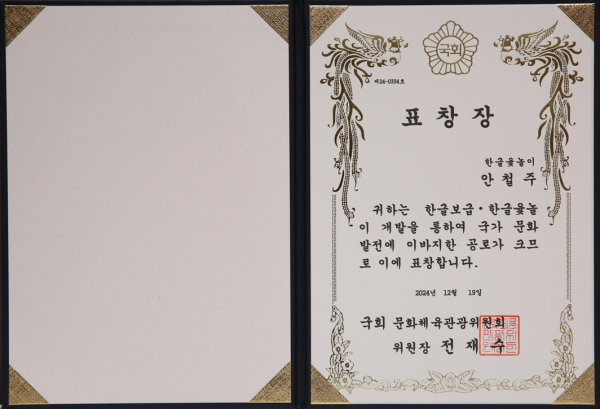 국회
제26-0356호
표창장
한글윷놀이
안철주
귀하는 한글보급·한글윷놀
이 개발을 통하여 국가 문화
발전에 이바지한 공로가 크므
로 이에 표창합니다.
2024년 12월 19일
국회 문화체육관광위원회
위원장 전재수